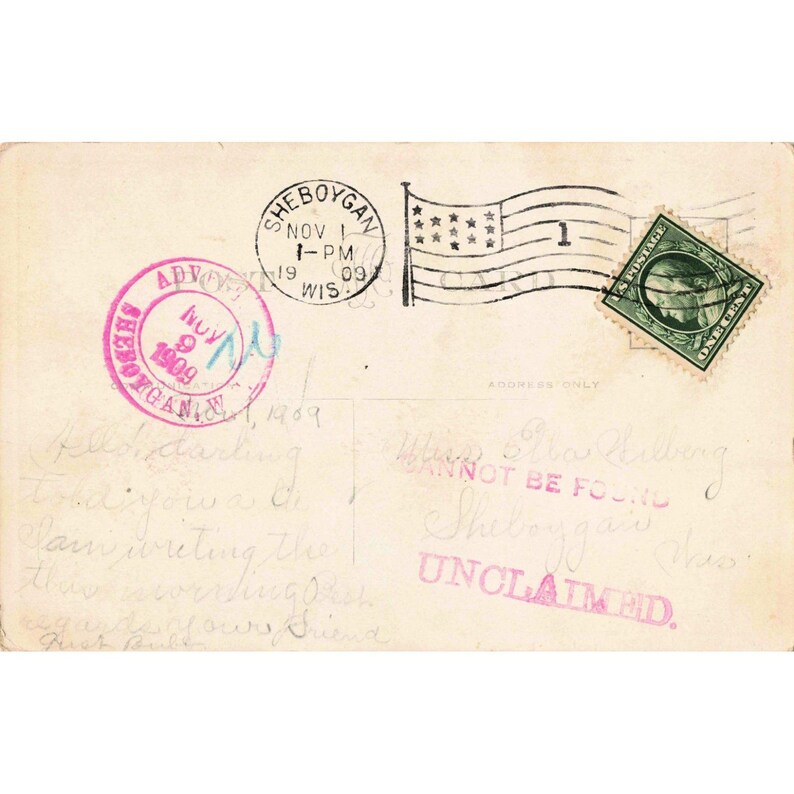 SHEBOYGAN
NOV 1
1-PM
1909
WIS.
1
U.S. POSTAGE
ONE CENT
POST CARD
ADV
NOV
9
1909
SHEBOYGAN, W
ADDRESS ONLY
Nov 1, 1909
Hello darling
told you a lie
I am writing the
this morning Best
regards your Friend
Just
Miss Ella Hilberg
CANNOT BE FOUND
Sheboygan
Wis
UNCLAIMED.